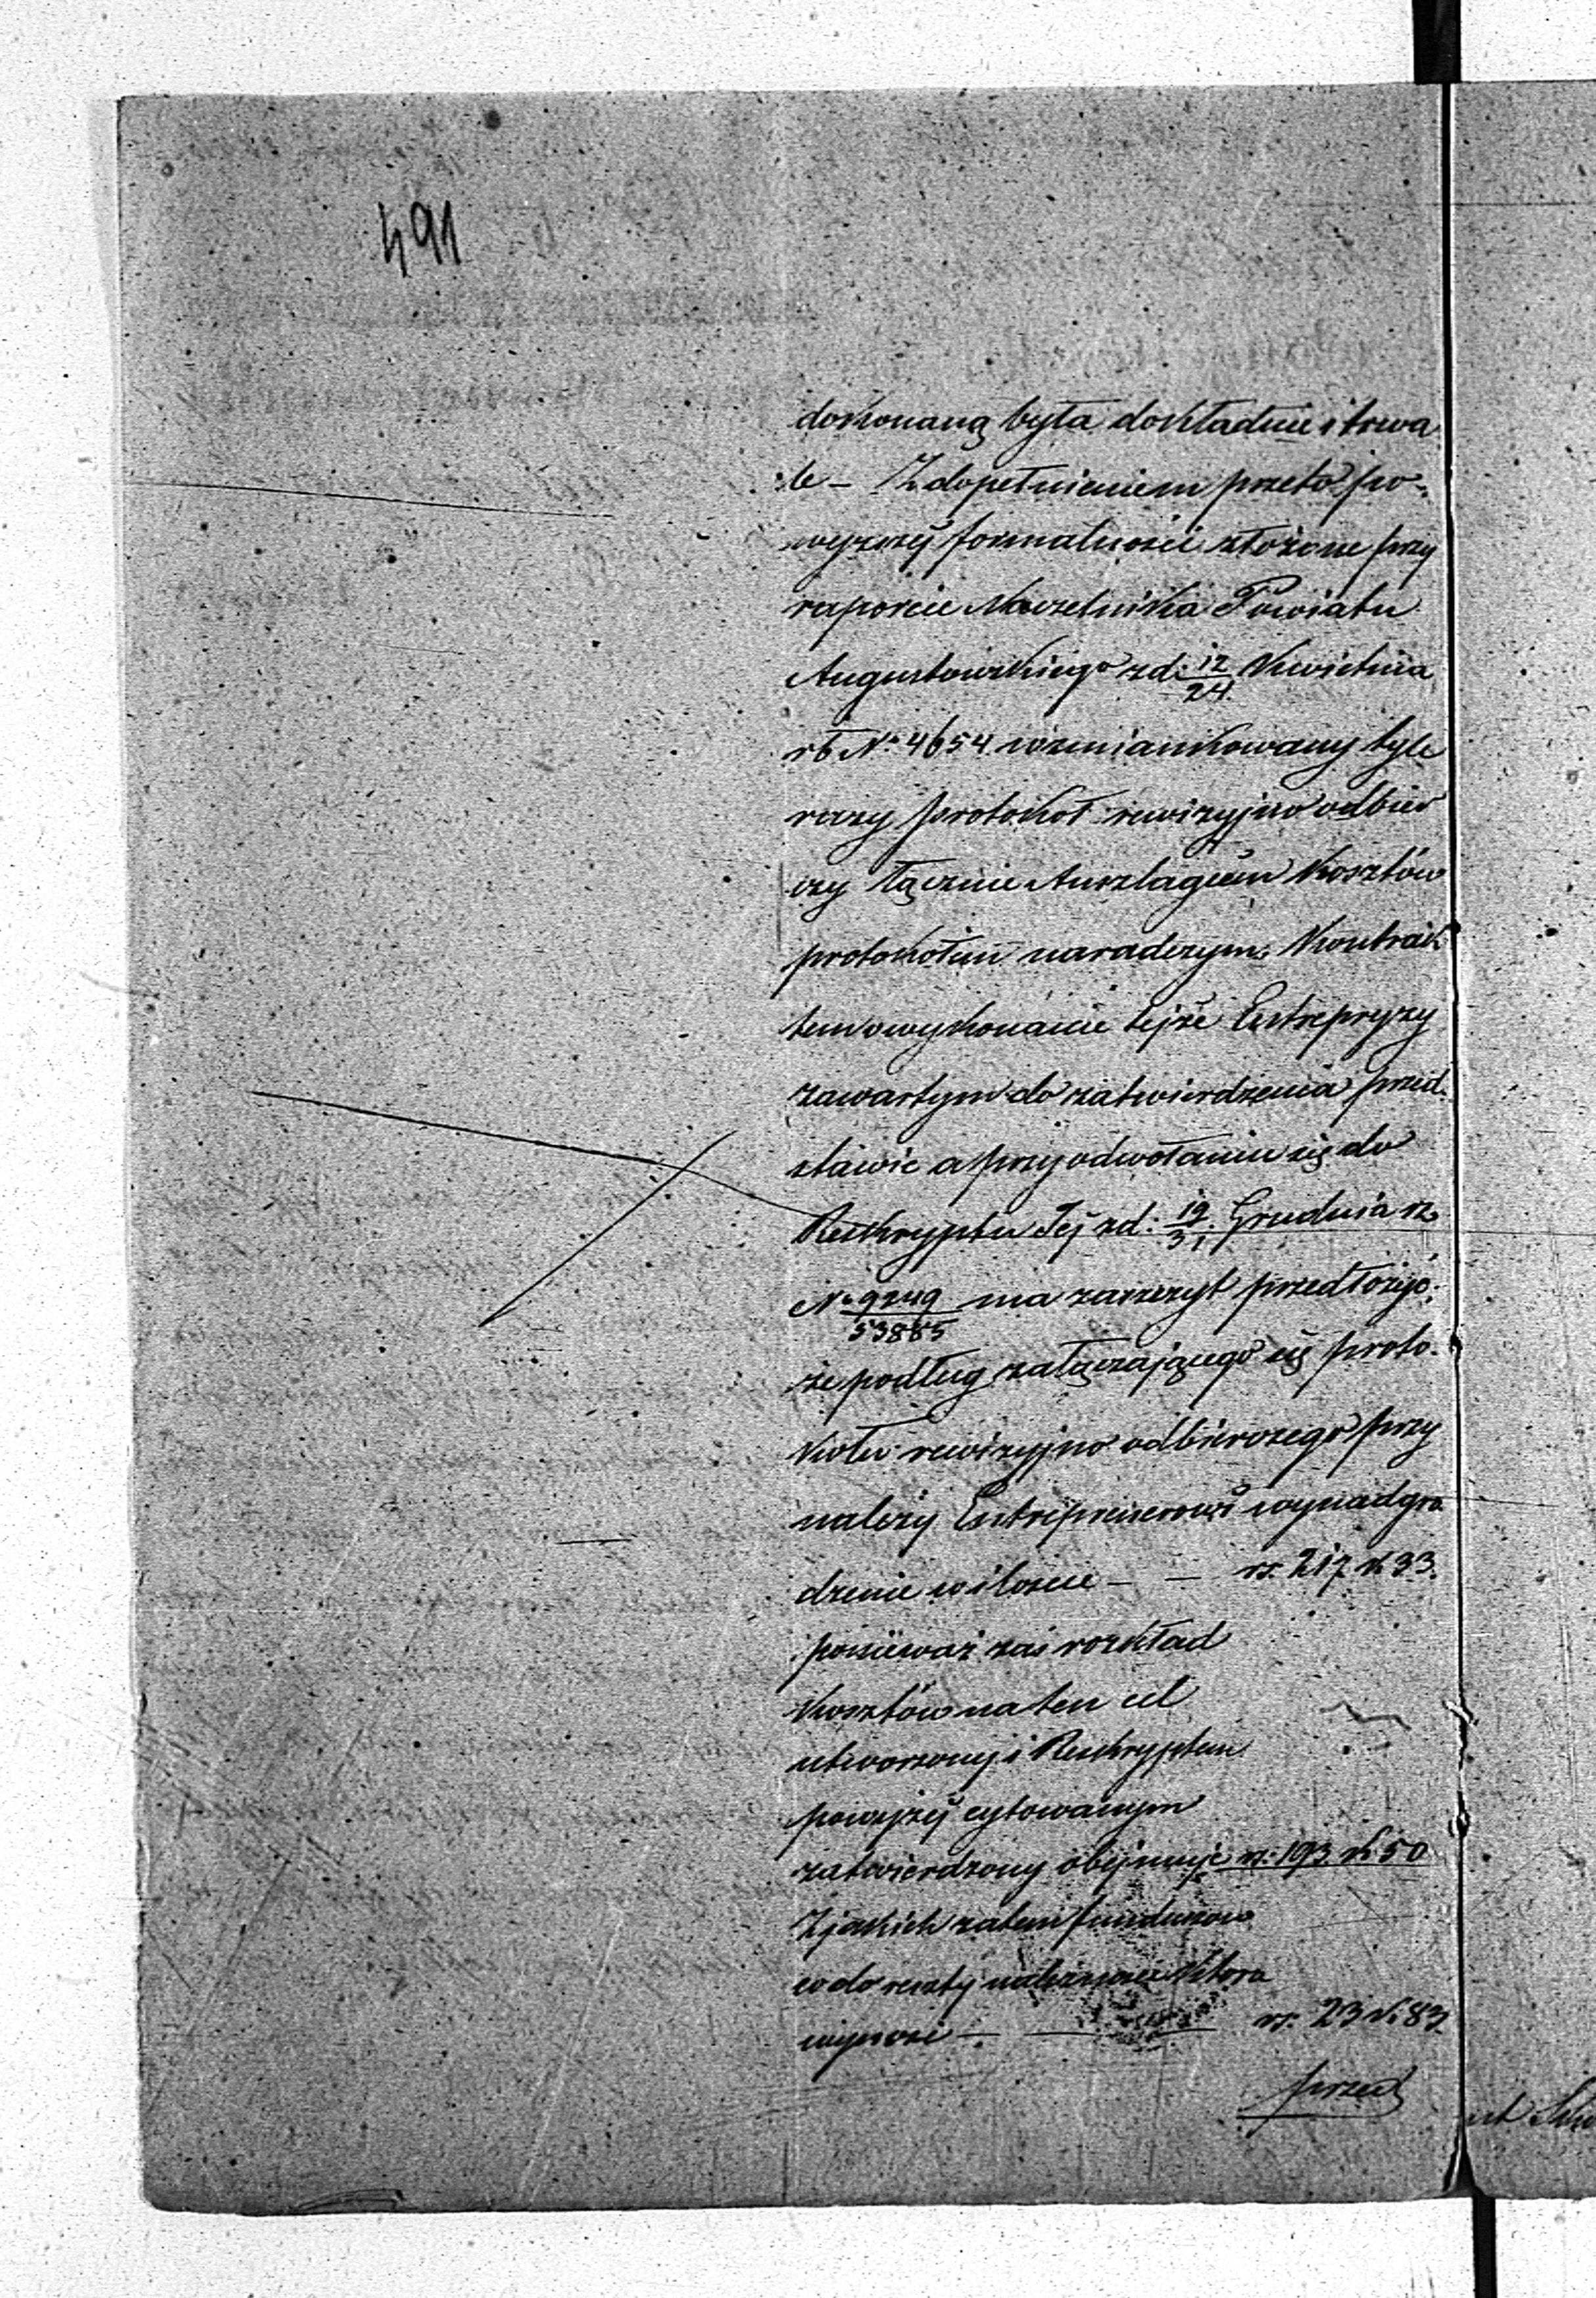 491
dokonaną była dokładnie i trwa
le – Z dopełnieniem przeto po-
wyższéj formalności złożone przy
raporcie Naczelnika Powiatu
Augustowskiego z d: 12/24 Kwietnia
rb No 4654 wzmiankowany tyle
razy protokół rewizyjno odbior
czy łącznie Anszlagiem Kosztów
protokołem naradczym, Kontrak
tem o wykonanie tejże Entrepryzy
zawartym do zatwierdzenia przed
stawić a przy odwołaniu się do
Reskryptu Jéj z d: 19/31 Grudnia rz
No 9249/53885 ma zaszczyt przedłożyć,
że podług załączającego się proto-
kołu rewizyjno odbiorczego przy
należy Entreprenerowi wynadgro
dzenie w ilości – – rs. 217 k 33.
ponieważ zaś rozkład
Kosztów na ten cel
utworzony i Reskryptem
powyżéj cytowanym
zatwierdzony obejmuje rs: 193 k 50
Z jakich zatem funduszów
co do reszty należności która
wynosi – rs. 23 k. 83.
przed